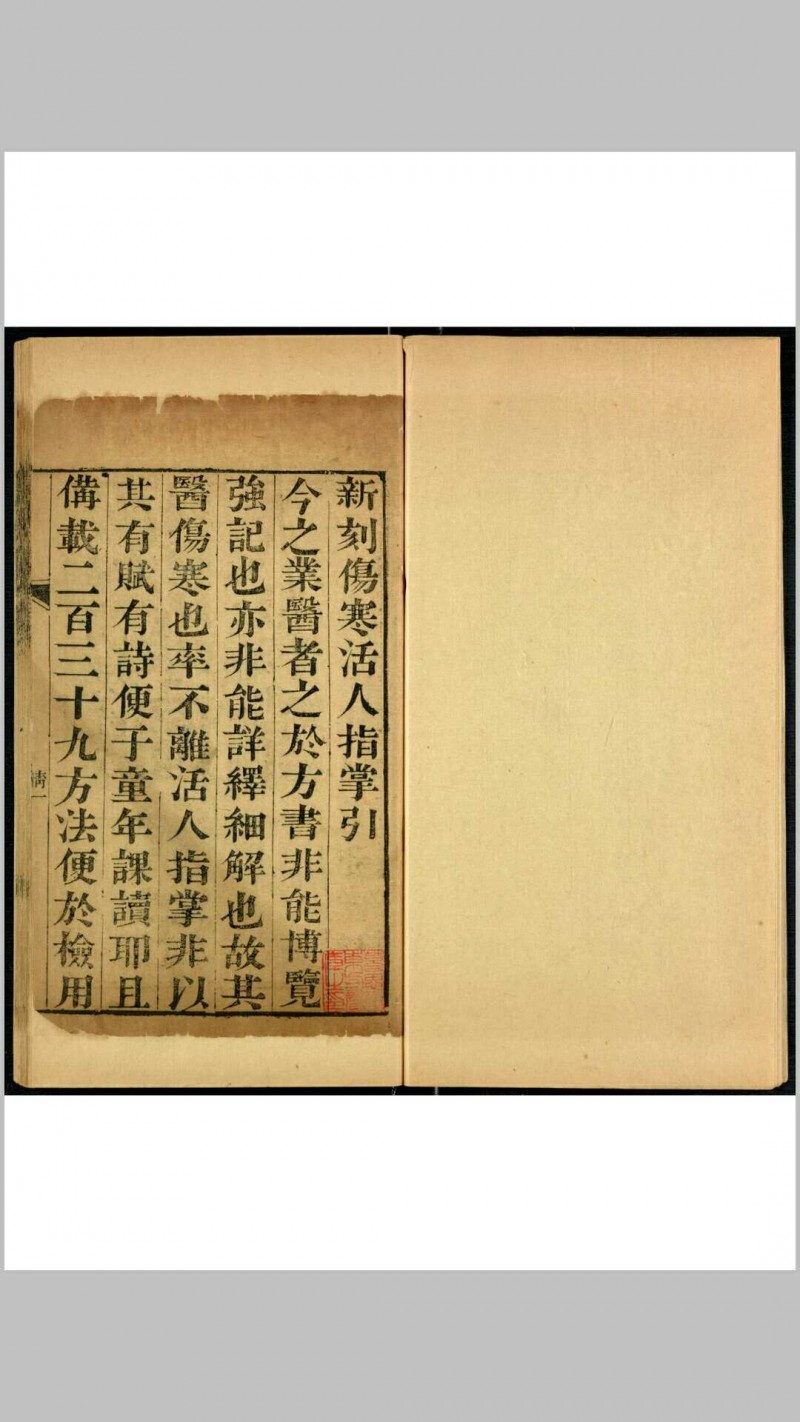 新刻傷寒活人指掌引
今之業醫者之於方書非能博覽
強記也亦非能詳繹細解也故其
醫傷寒也率不離活人指掌非以
其有賦有詩便子童年課讀耶且
備載二百三十九方法便於檢用